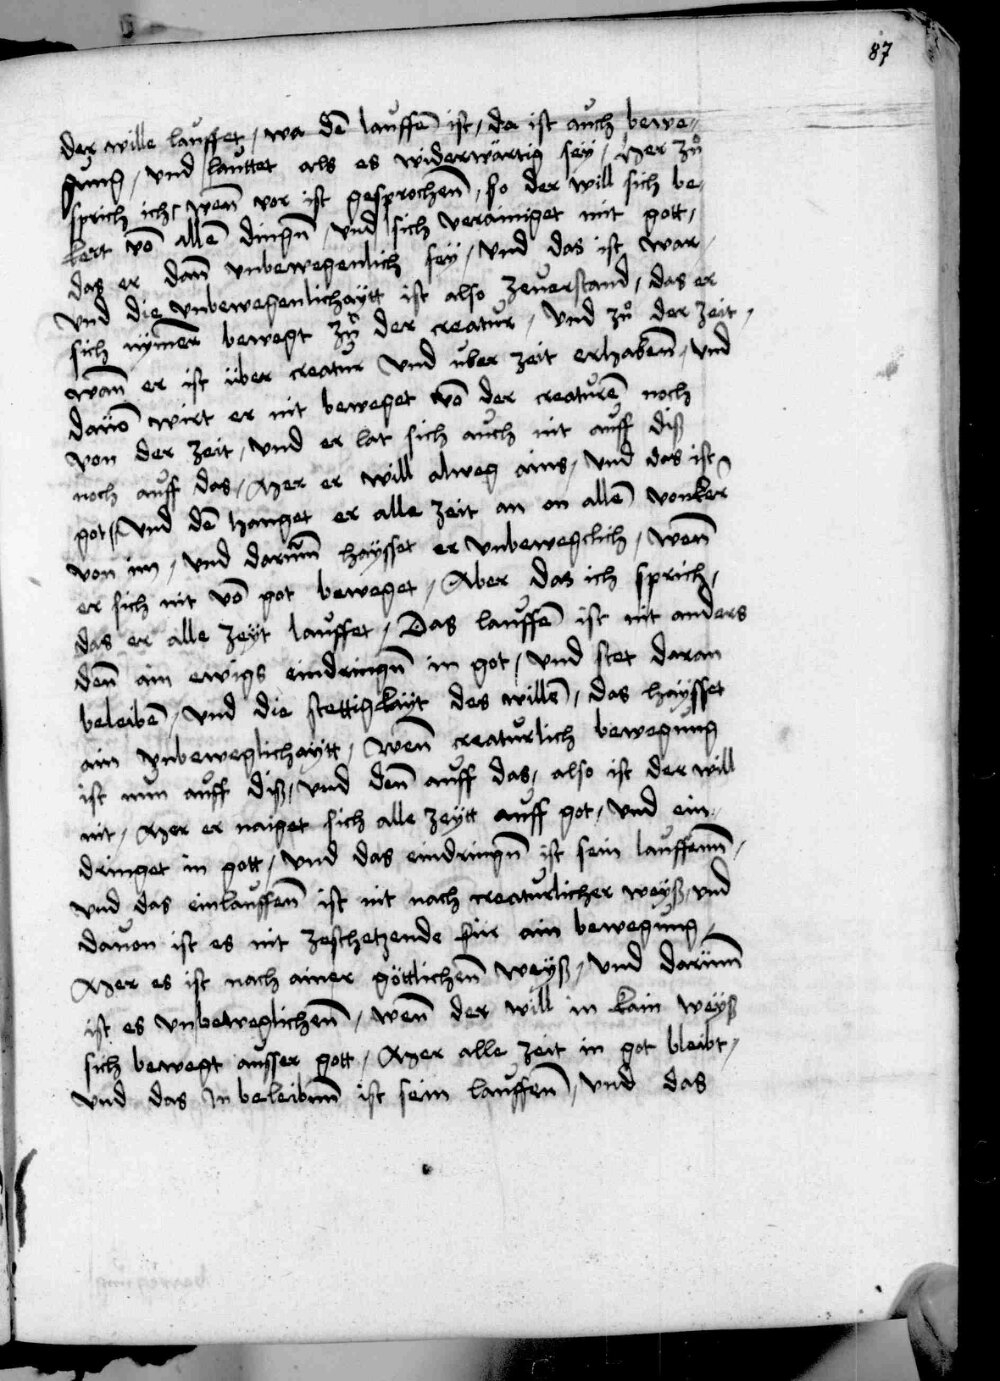 87
der wille lauffet / wa dē lauffē ist / da ist auch bewe¬
gung / vnd lauttet als es widerwärtig sey / Aber zuͦ
sprich ich / wen̄ vor ist gesprochen̄ / so der will sich be¬
kert vō allē dingn̄ / vnd sich verainiget mit gott /
das er dan̄ vnbewegenlich sey / vnd das ist war /
vnd die vnbewegenlichaytt ist also zeuerstand / das er
sich nym̄er bewegt zuͦ der creatur / vnd zuͦ der zeit /
wan̄ er ist über creatur vnd uber zeit erhaben̄ / vnd
dauō wirt er nit beweget vō der creaturē noch
von der zeit / vnd er lat sich auch nit auff diß
noch auff das / Aber er will alweg ains / vnd das ist
got / vnd dē hanget er alle zeit an on allē vonker
von im / vnd darum̄ haysset er vnbeweglich / wen̄
er sich nit vō got beweget / Aber das ich sprich /
das er alle zeyt lauffet / Das lauffē ist nit anders
den̄ ain ewigs eindringn̄ in got / vnd stet daran
beleibē / vnd die stettigkayt des willē / das haysset
ain vnbeweglichaytt / wen̄ creaturlich bewegung
ist nun auff diß / vnd den̄ auff das / also ist der will
nit / Aber er naiget sich alle zeytt auff got / vnd ein¬
dringet in gott / vnd das eindringn̄ ist sein lauffenn̄ /
vnd das einlauffen̄ ist nit nach creaturlicher weyß / vnd
dauon ist es nit zeschetzende für ain bewegung /
Aber es ist nach ainer göttlichen̄ weyß / vnd darum̄
ist es vnbeweglichen̄ / wen̄ der will in kain weyß
sich bewegt ausser gott / Aber alle zeit in got bleibt /
vnd das In beleibun̄ ist sein lauffen̄ / vnd das